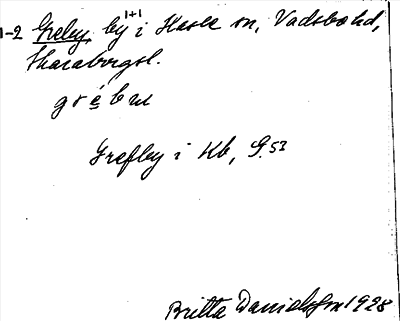 1-2 Greby, by i Hassle sn, Vadsbo hd,
1+1
Skaraborgsl.
g r é b m
Grefby i Kb, S. 53
Britta Danielsson 1928